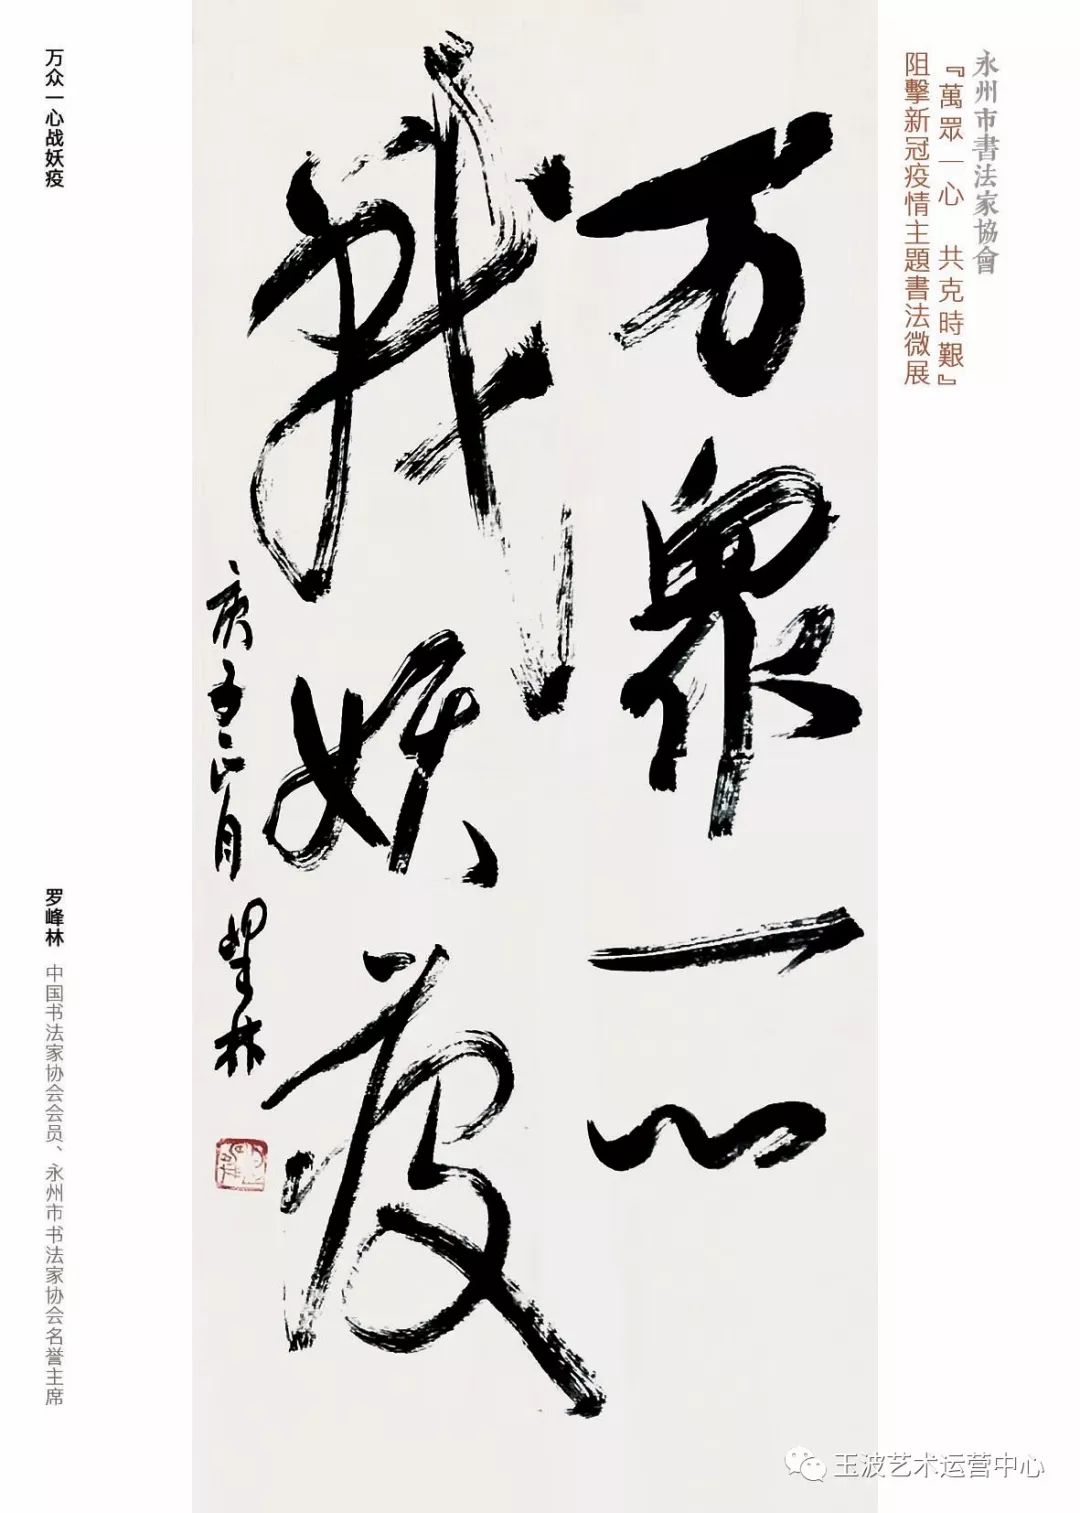 永州市書法家協會
『萬眾一心 共克時艱』
阻擊新冠疫情主題書法微展
万眾一心
戰妖疫
庚子正月 峰林
万众一心战妖疫
罗峰林 中国书法家协会会员、永州市书法家协会名誉主席
玉波艺术运营中心